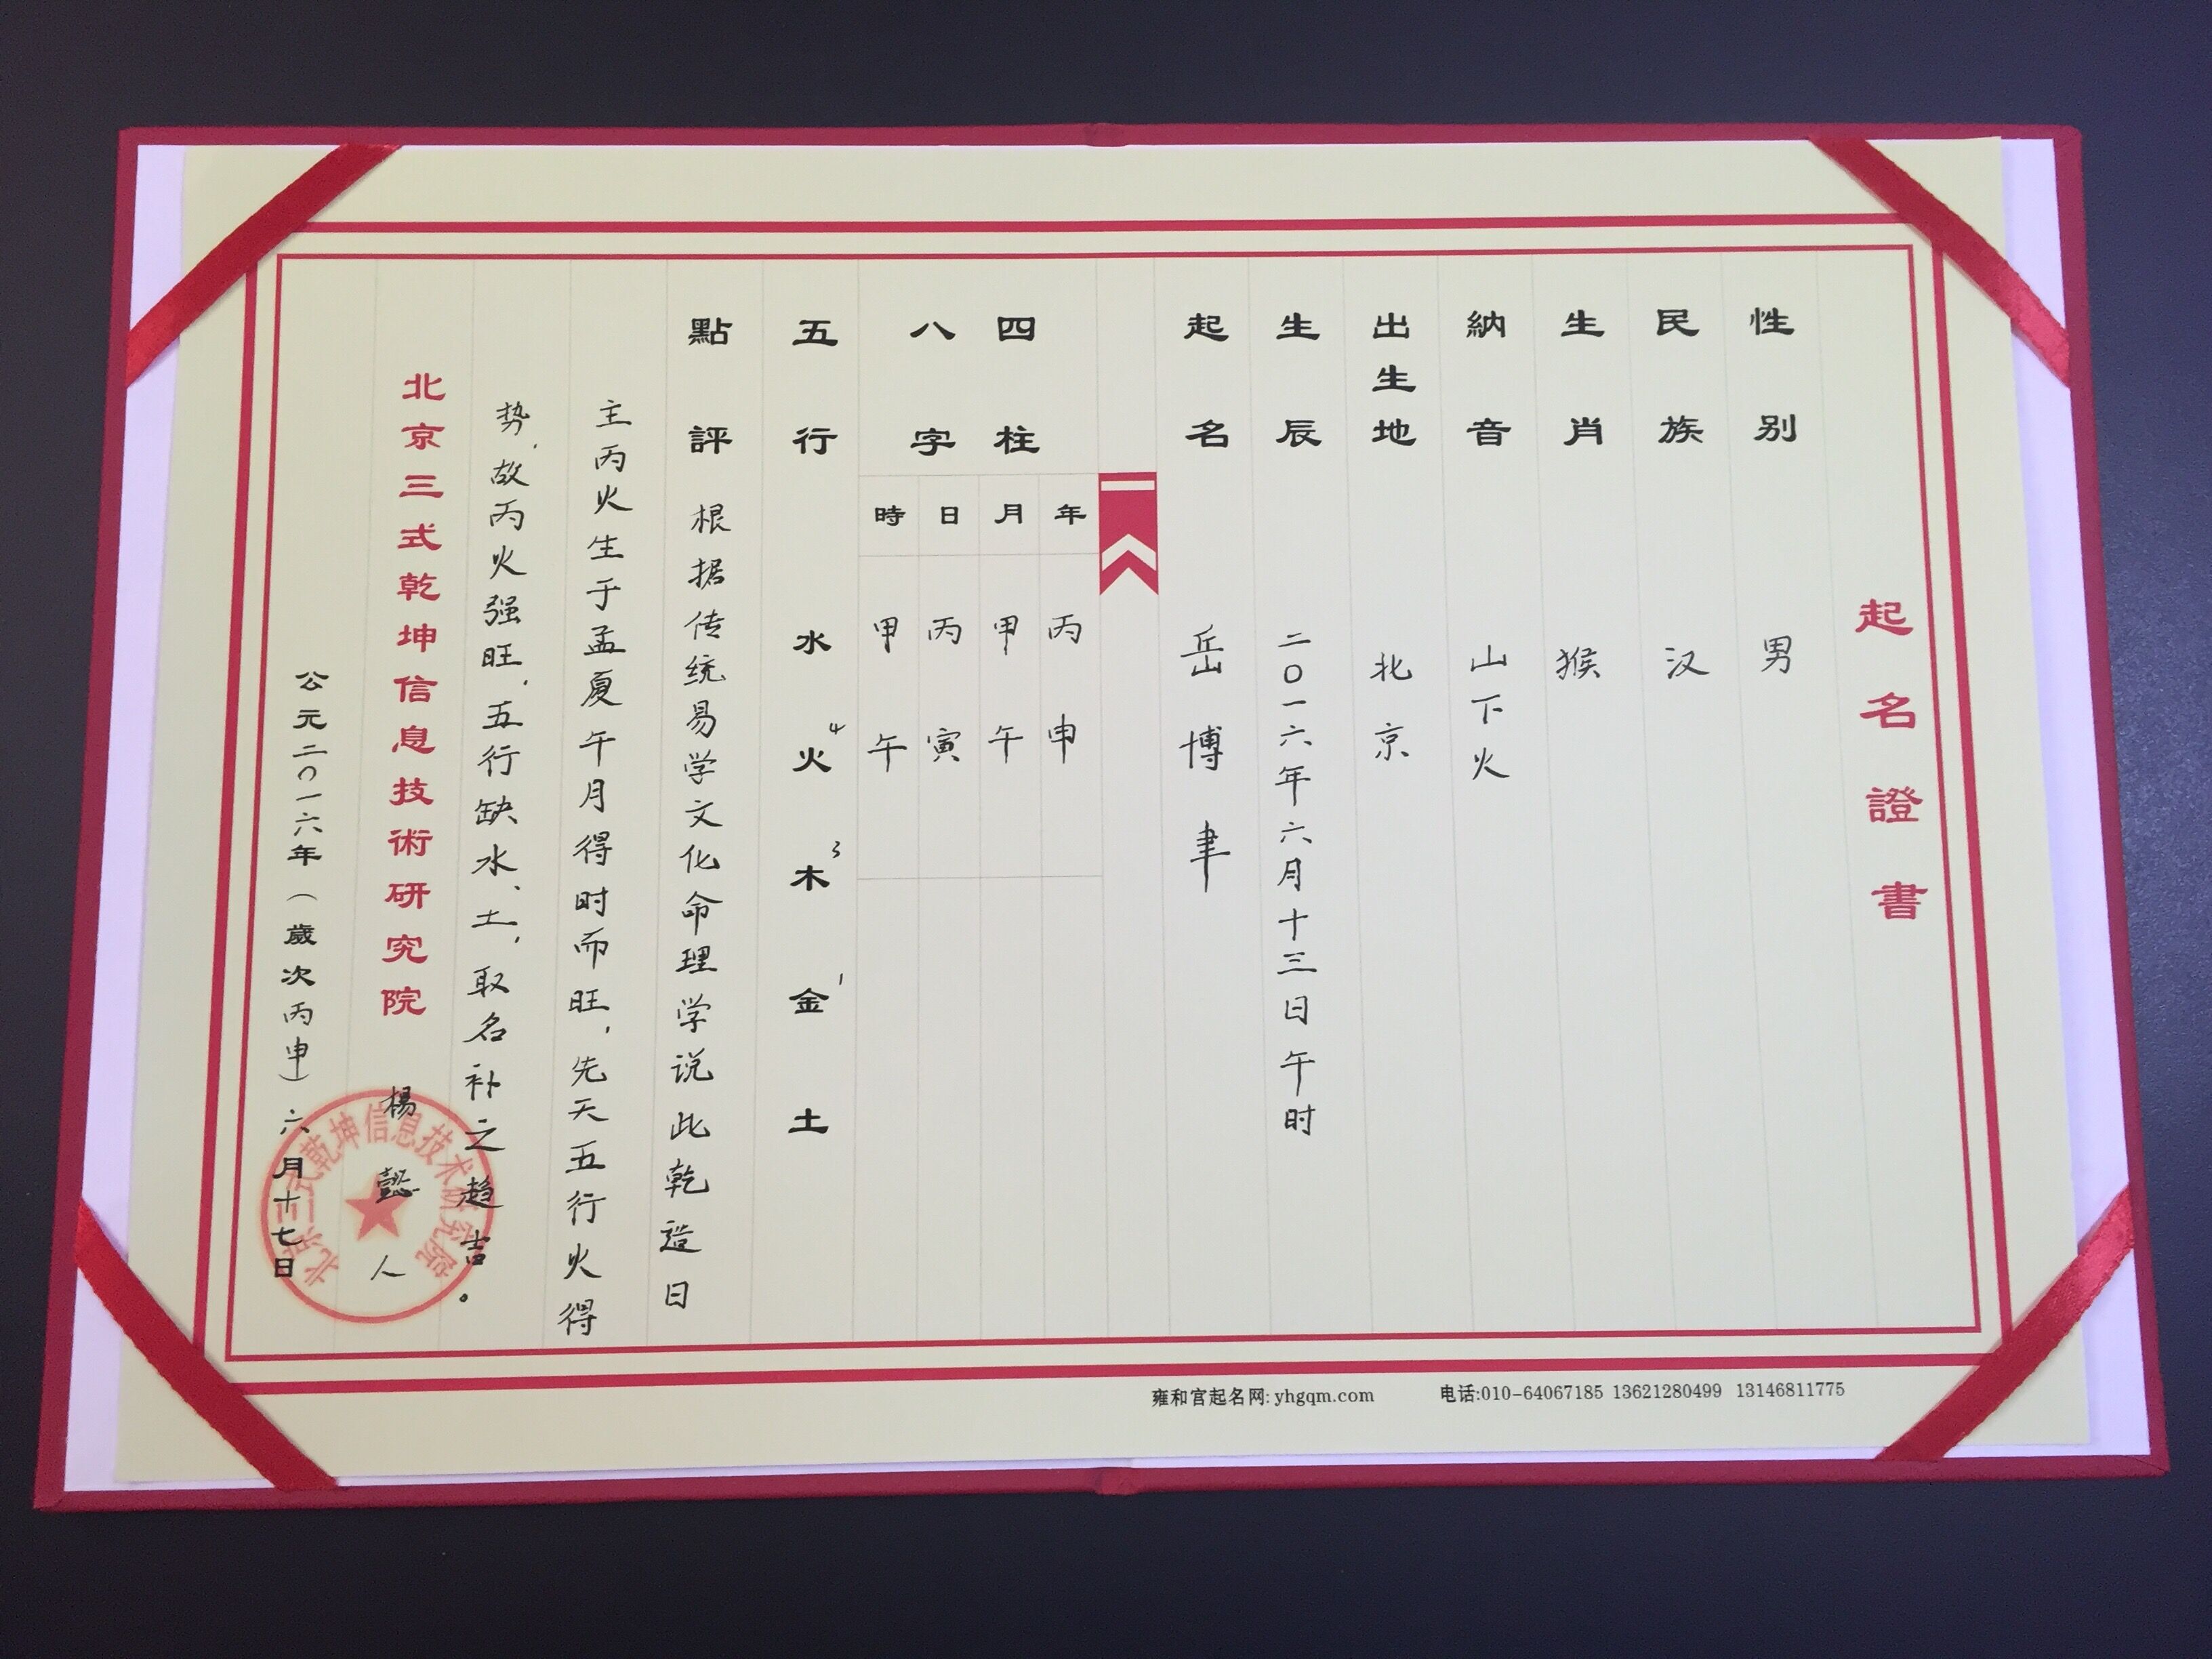 起名證書
性别 男
民族 汉
生肖 猴
納音 山下火
出生地 北京
生辰 二〇一六年六月十三日午时
起名 岳博聿
四柱
八字
年 丙申
月 甲午
日 丙寅
時 甲午
五行 水 火4 木3 金1 土
點評 根据传统易学文化命理学说此乾造日
主丙火生于孟夏午月得时而旺,先天五行火得
势,故丙火强旺,五行缺水、土,取名补之趋吉。
北京三式乾坤信息技術研究院 楊懿人
公元二〇一六年(歲次丙申)六月十七日
北京三式乾坤信息技术研究院
雍和宫起名网: yhgqm.com 电话:010-64067185 13621280499 13146811775